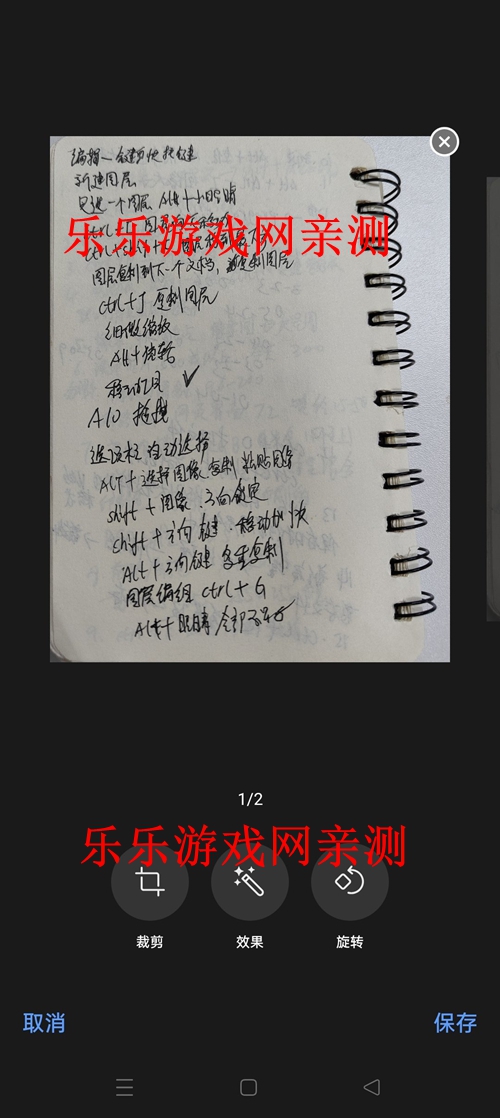 新建图层
只选一个图层 Alt+小眼睛
乐乐游戏网亲测
图层复制到下一个文档，复制图层
ctrl+J 复制图层
细微缩放
Alt+
移动工具 ✓
Alt 拖拽
选项栏 自动选择
ALT+选择图像 复制 粘贴图层
shift+图像 方向锁定
shift+方向键 移动加快
Alt+方向键 多重复制
图层编组 ctrl+G
Alt+眼睛 全部
1/2
乐乐游戏网亲测
裁剪 效果 旋转
取消 保存